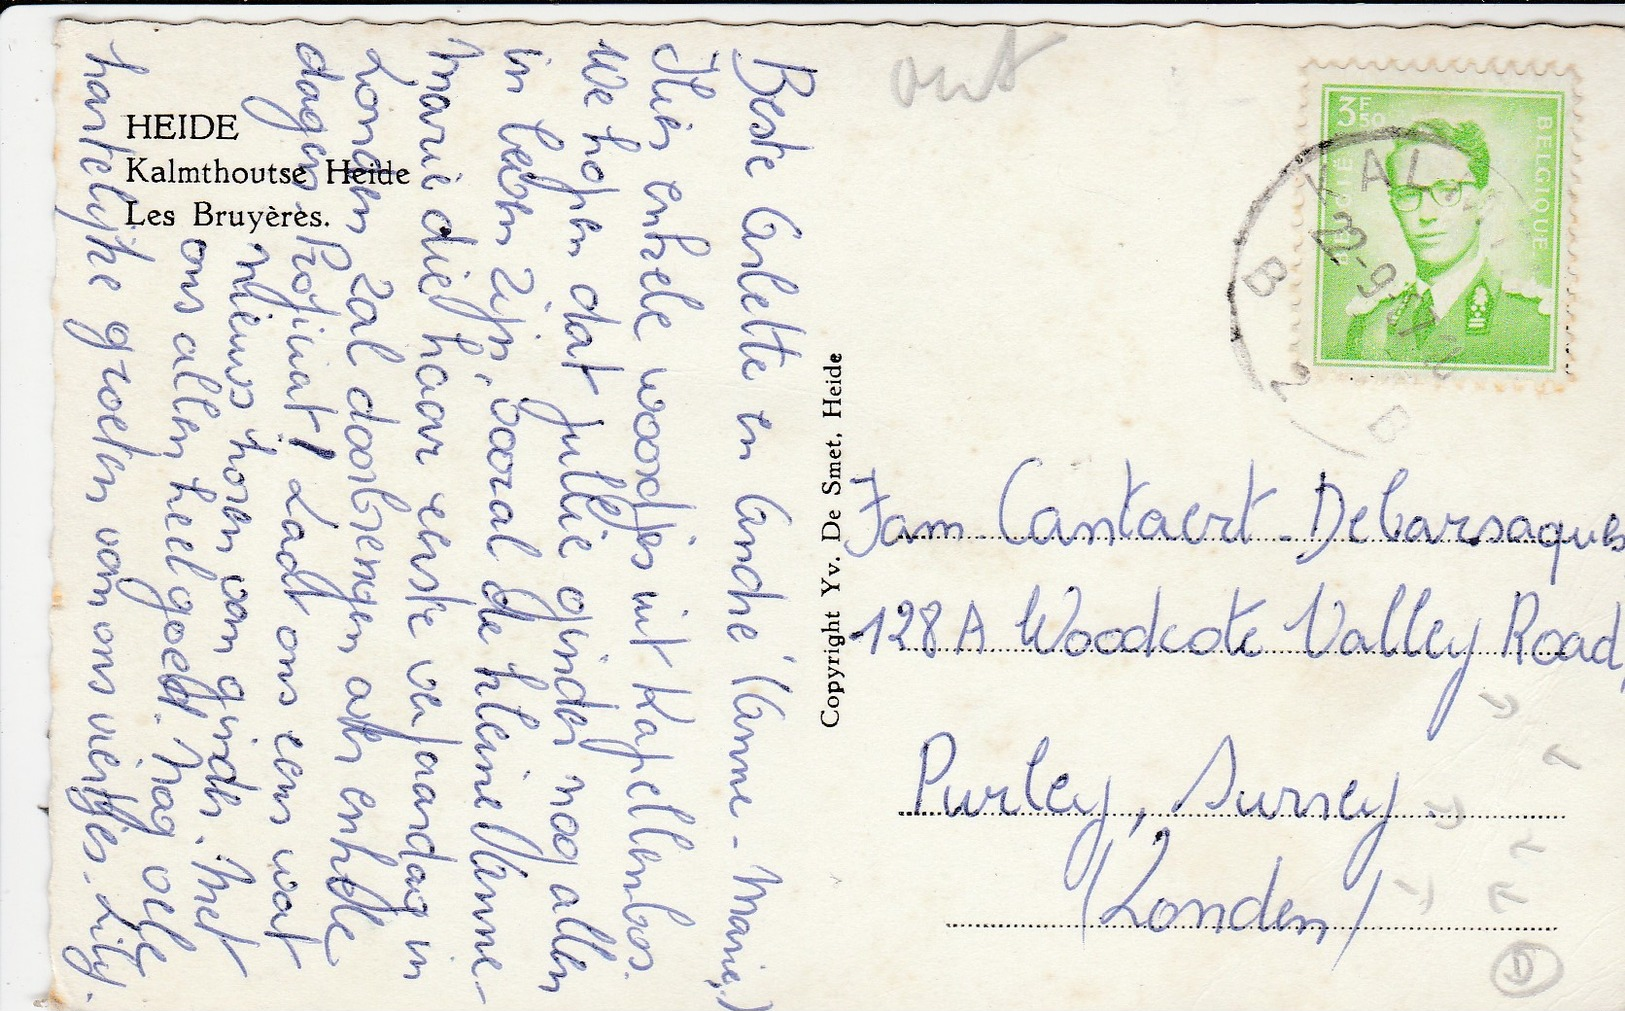 HEIDE
Kalmthoutse Heide
Les Bruyères.
Beste Arlette en André (Anne-Marie,)
Hier enkele woordjes uit Kapellenbos.
We hopen dat jullie ginder nog allen
in leven zijn, vooral de kleine Anne-
Marie die haar eerste verjaardag in
Londen zal doorbrengen over enkele
dagen. Proficiat! Laat ons eens wat
nieuws horen van ginder. Met
ons allen heel goed. Nog vele
hartelijke groeten van ons viertjes. Lily.
Copyright Yv. De Smet, Heide
3F50
BELGIË
BELGIQUE
KAL
B
2
B
Fam Cantaert - Debarsaques
128A Woodcote Valley Road,
Purley, Surrey
(Londen)
D